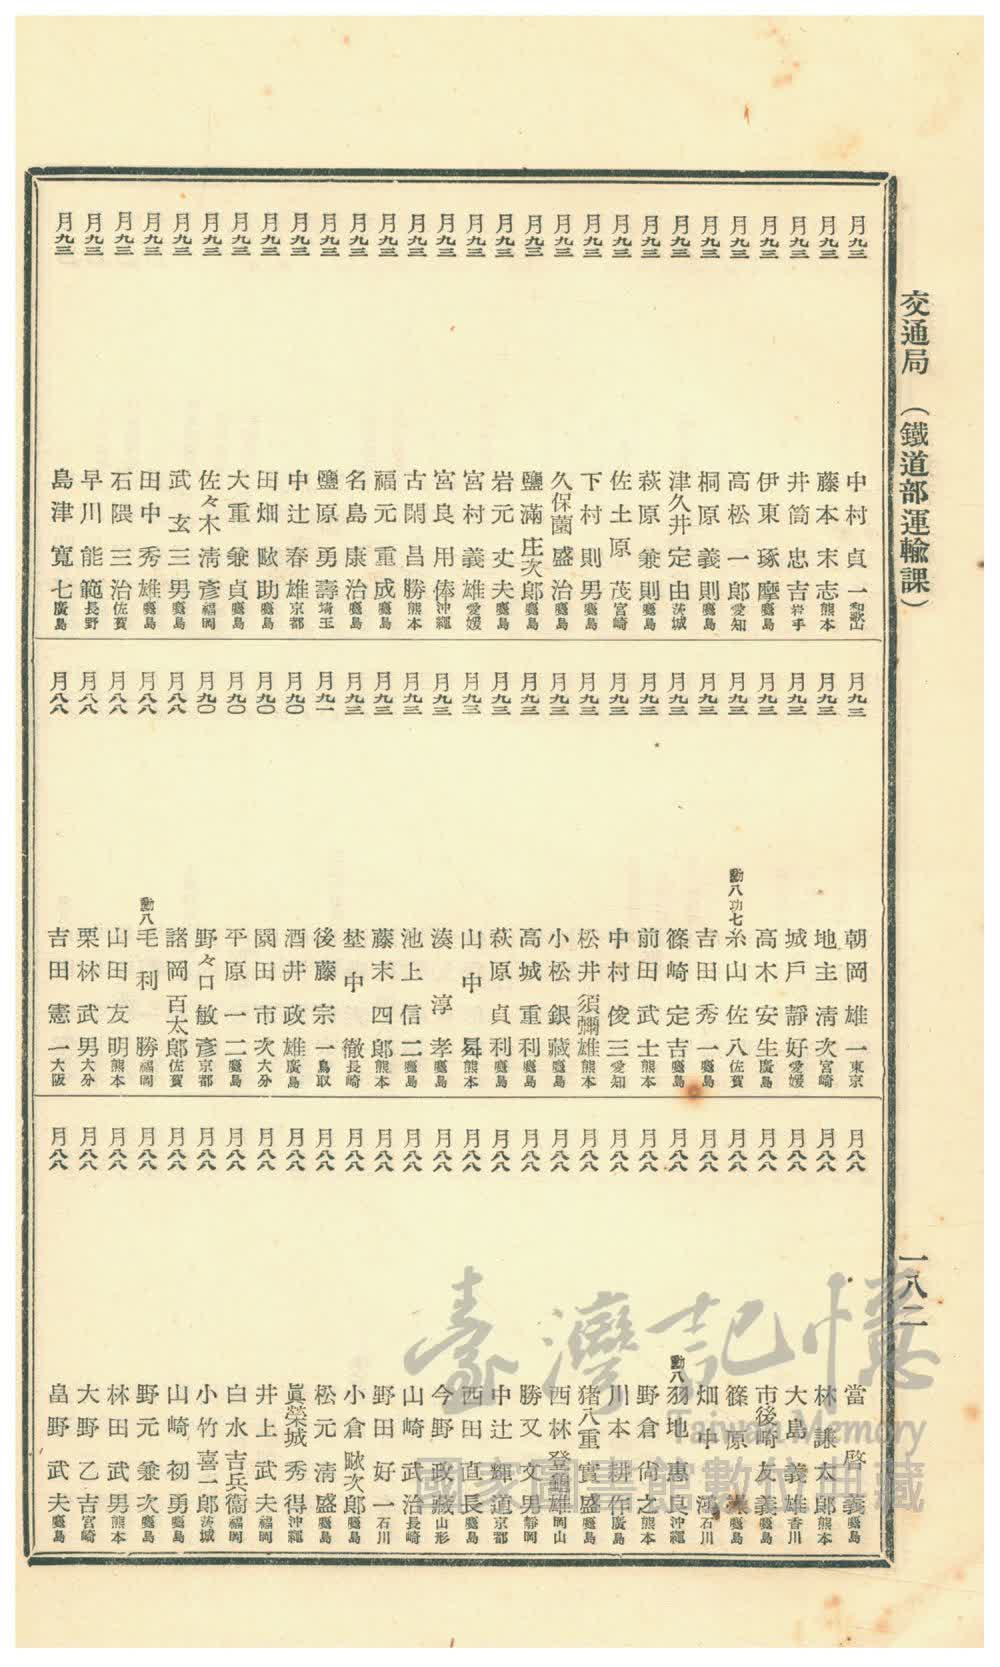 交通局 (鐵道部運輸課)
一八二
月九三 中村貞一 和歌山
月九三 藤本末志 熊本
月九三 井筒忠吉 岩手
月九三 伊東琢摩 鹿島
月九三 高松一郎 愛知
月九三 桐原義則 鹿島
月九三 津久井定由 茨城
月九三 萩原兼則 鹿島
月九三 佐土原茂 宮崎
月九三 下村則男 鹿島
月九三 久保薗盛治 鹿島
月九三 鹽滿庄次郎 鹿島
月九三 岩元丈夫 鹿島
月九三 宮村義雄 愛媛
月九三 宮良用俸 沖繩
月九三 古閑昌勝 熊本
月九三 福元重成 鹿島
月九三 名島康治 鹿島
月九三 鹽原勇壽 埼玉
月九三 中辻春雄 京都
月九三 田畑畩助 鹿島
月九三 大重兼貞 鹿島
月九三 佐々木淸彥 福岡
月九三 武玄三男 鹿島
月九三 田中秀雄 鹿島
月九三 石隈三治 佐賀
月九三 早川能範 長野
月九三 島津寬七 廣島
月九三 朝岡雄一 東京
月九三 地主淸次 宮崎
月九三 城戶靜好 愛媛
月九三 高木安生 廣島
月九三 勳八功七 糸山佐八 佐賀
月九三 吉田秀一 鹿島
月九三 篠崎定吉 鹿島
月九三 前田武士 熊本
月九三 中村俊三 愛知
月九三 松井須彌雄 熊本
月九三 小松銀藏 鹿島
月九三 高城重利 鹿島
月九三 萩原貞利 鹿島
月九三 山中曻 熊本
月九三 湊淳孝 鹿島
月九三 池上信二 鹿島
月九三 藤末四郎 熊本
月九三 埜中徹 長崎
月九一 後藤宗一 鳥取
月九〇 酒井政雄 廣島
月九〇 園田市次 大分
月九〇 平原一二 鹿島
月九〇 野々口敏彥 京都
月八八 諸岡百太郎 佐賀
月八八 勳八 毛利勝 福岡
月八八 山田友明 熊本
月八八 栗林武男 大分
月八八 吉田憲一 大阪
月八八 當啓義 鹿島
月八八 林謙太郎 熊本
月八八 大島義雄 香川
月八八 市後崎友義 鹿島
月八八 篠原 鹿島
月八八 畑中鴻 石川
月八八 勳八 羽地惠良 沖繩
月八八 野倉尙之 熊本
月八八 川本耕作 廣島
月八八 猪八重實盛 鹿島
月八八 西林登雄 岡山
月八八 勝又文男 靜岡
月八八 中辻輝道 京都
月八八 西田直長 鹿島
月八八 今野政藏 山形
月八八 山崎武治 長崎
月八八 野田好一 石川
月八八 小倉畩次郎 鹿島
月八八 松元淸盛 鹿島
月八八 眞榮城秀得 沖繩
月八八 井上武夫 福岡
月八八 白水吉兵衞 福岡
月八八 小竹喜一郎 茨城
月八八 山崎初勇 鹿島
月八八 野元兼次 鹿島
月八八 林田武男 熊本
月八八 大野乙吉 宮崎
月八八 畠野武夫 鹿島
臺灣記憶
Taiwan Memory
國家圖書館數位典藏